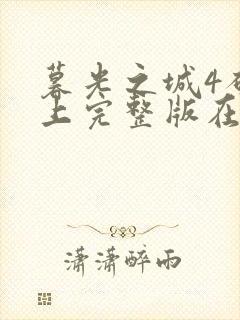 暮光之城4
上完整版在
潇潇醉雨